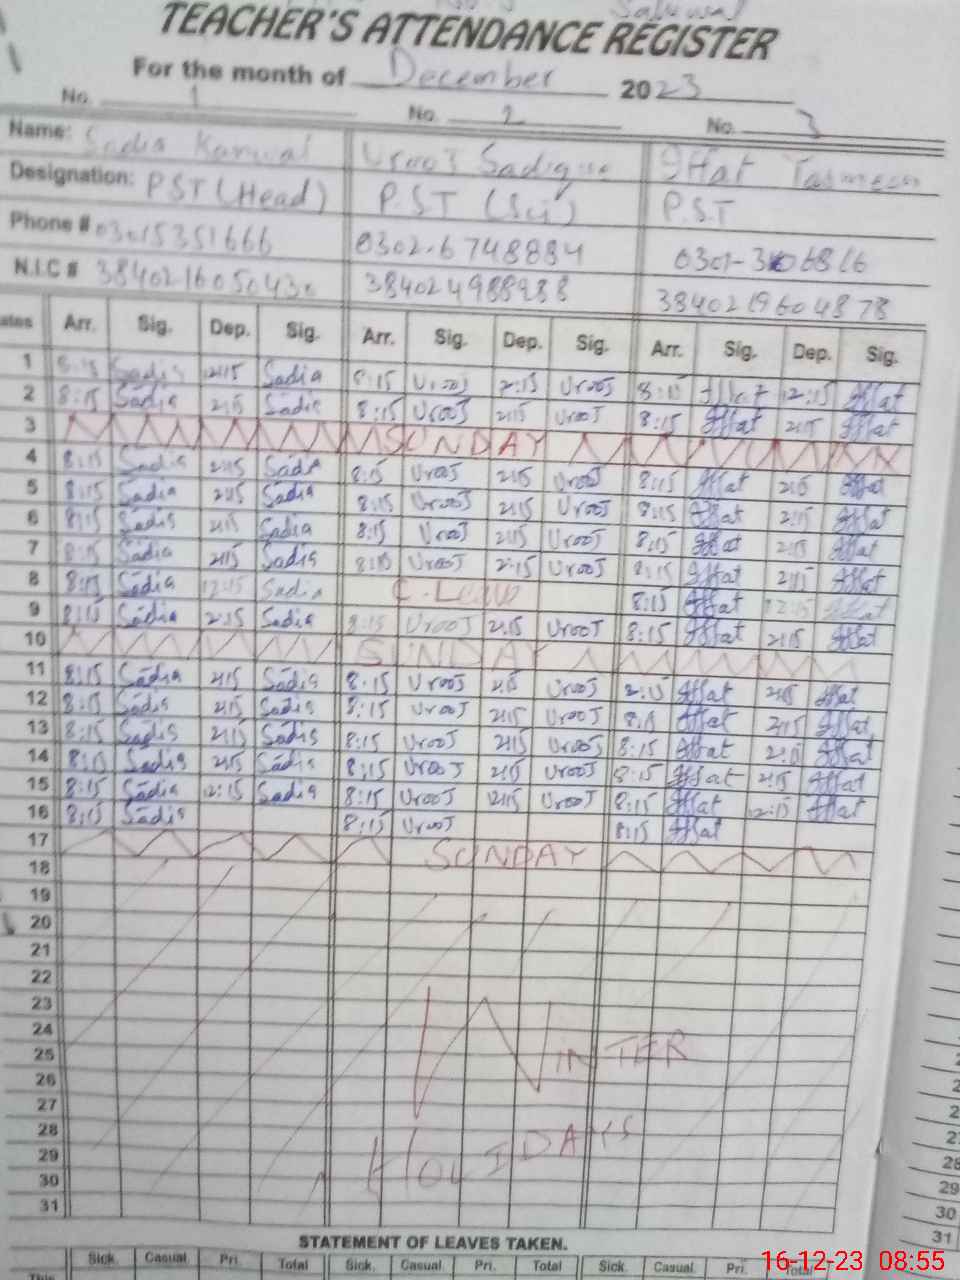 Sahiwal
TEACHER'S ATTENDANCE REGISTER
For the month of December 2023
No. 1 No. 2 No. 3
Name: Sadia Kanwal Urooj Sadique Iffat Tasmeen
Designation: PST (Head) P.ST (Sci) P.S.T
Phone # 03015351666 0302-6748884
N.I.C # 3840249889388 3840219604878
ates Arr. Sig. Dep. Sig. Arr. Sig. Dep. Sig. Arr. Sig. Dep. Sig.
1 8:15 Sadia 12:15 Sadia 8:15 Urooj 2:15 Urooj 8:15 Iffat 12:15 Iffat
2 8:15 Sadia 2:15 Sadia 8:15 Urooj 2:15 Urooj 8:15 Iffat 2:15 Iffat
3 SUNDAY
4 8:15 Sadia 2:15 Sadia 8:15 Urooj 2:15 Urooj 8:15 Iffat 2:15 Iffat
5 8:15 Sadia 2:15 Sadia 8:15 Urooj 2:15 Urooj 8:15 Iffat 2:15 Iffat
6 8:15 Sadia 2:15 Sadia 8:15 Urooj 2:15 Urooj 8:15 Iffat 2:15 Iffat
7 8:15 Sadia 2:15 Sadia 8:15 Urooj 2:15 Urooj 8:15 Iffat 2:15 Iffat
8 8:15 Sadia 12:15 Sadia C.Leave 8:15 Iffat 12:15 Iffat
9 8:15 Sadia 2:15 Sadia 8:15 Urooj 2:15 Urooj 8:15 Iffat 2:15 Iffat
10 SUNDAY
11 8:15 Sadia 2:15 Sadia 8:15 Urooj 2:15 Urooj 2:15 Iffat 2:15 Iffat
12 8:15 Sadia 2:15 Sadia 8:15 Urooj 2:15 Urooj 8:15 Iffat 2:15 Iffat
13 8:15 Sadia 2:15 Sadia 8:15 Urooj 2:15 Urooj 8:15 Iffat 2:15 Iffat
14 8:15 Sadia 2:15 Sadia 8:15 Urooj 2:15 Urooj 8:15 Iffat 2:15 Iffat
15 8:15 Sadia 12:15 Sadia 8:15 Urooj 12:15 Urooj 8:15 Iffat 12:15 Iffat
16 8:15 Sadia 8:15 Urooj 8:15 Iffat
17 SUNDAY
18
19
20
21
22
23
24
25 WINTER
26
27
28
29 HOLIDAYS
30
31
STATEMENT OF LEAVES TAKEN.
Sick. Casual. Pri. Total Sick. Casual. Pri. Total Sick. Casual. Pri. Total
This
28
29
30
31
16-12-23 08:55